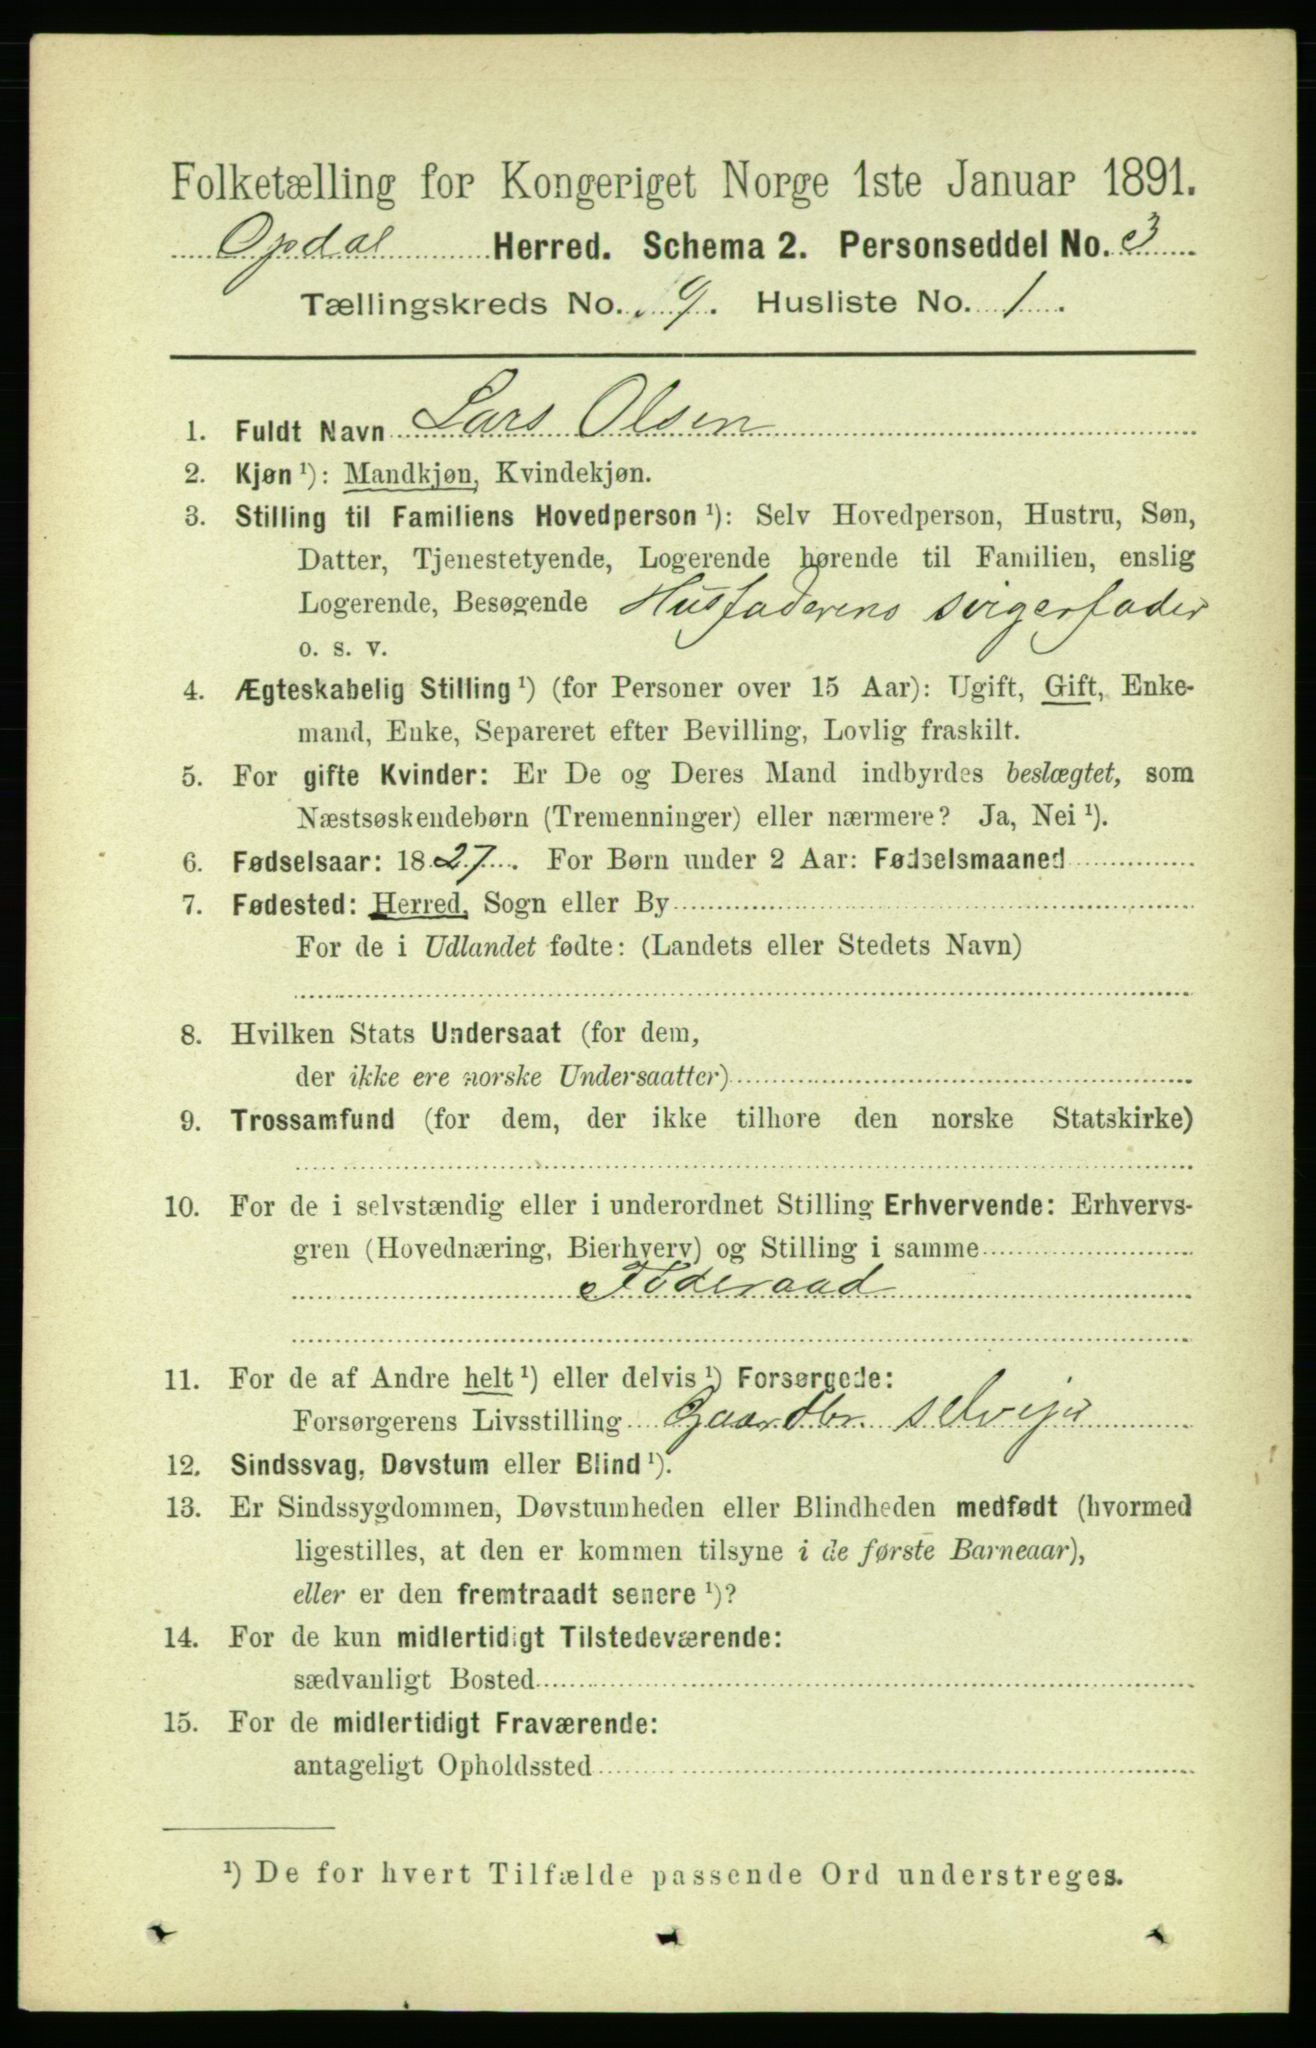 Folketælling for Kongeriget Norge 1ste Januar 1891.
Opdal Herred. Schema 2. Personseddel No. 3
Tællingskreds No. 9. Husliste No. 1.
1. Fuldt Navn Lars Olsen
2. Kjøn ¹): Mandkjøn, Kvindekjøn.
3. Stilling til Familiens Hovedperson ¹): Selv Hovedperson, Hustru, Søn,
Datter, Tjenestetyende, Logerende hørende til Familien, enslig
Logerende, Besøgende Husfaderens svigerfader
o. s. v.
4. Ægteskabelig Stilling ¹) (for Personer over 15 Aar): Ugift, Gift, Enke-
mand, Enke, Separeret efter Bevilling, Lovlig fraskilt.
5. For gifte Kvinder: Er De og Deres Mand indbyrdes beslægtet, som
Næstsøskendebørn (Tremenninger) eller nærmere? Ja, Nei ¹).
6. Fødselsaar: 1827. For Børn under 2 Aar: Fødselsmaaned
7. Fødested: Herred, Sogn eller By
For de i Udlandet fødte: (Landets eller Stedets Navn)
8. Hvilken Stats Undersaat (for dem,
der ikke ere norske Undersaatter)
9. Trossamfund (for dem, der ikke tilhøre den norske Statskirke)
10. For de i selvstændig eller i underordnet Stilling Erhvervende: Erhvervs-
gren (Hovednæring, Bierhverv) og Stilling i samme
Føderaad
11. For de af Andre helt ¹) eller delvis ¹) Forsørgede:
Forsørgerens Livsstilling Gaardbr. selvejer
12. Sindssvag, Døvstum eller Blind ¹).
13. Er Sindssygdommen, Døvstumheden eller Blindheden medfødt (hvormed
ligestilles, at den er kommen tilsyne i de første Barneaar),
eller er den fremtraadt senere ¹)?
14. For de kun midlertidigt Tilstedeværende:
sædvanligt Bosted
15. For de midlertidigt Fraværende:
antageligt Opholdssted
¹) De for hvert Tilfælde passende Ord understreges.